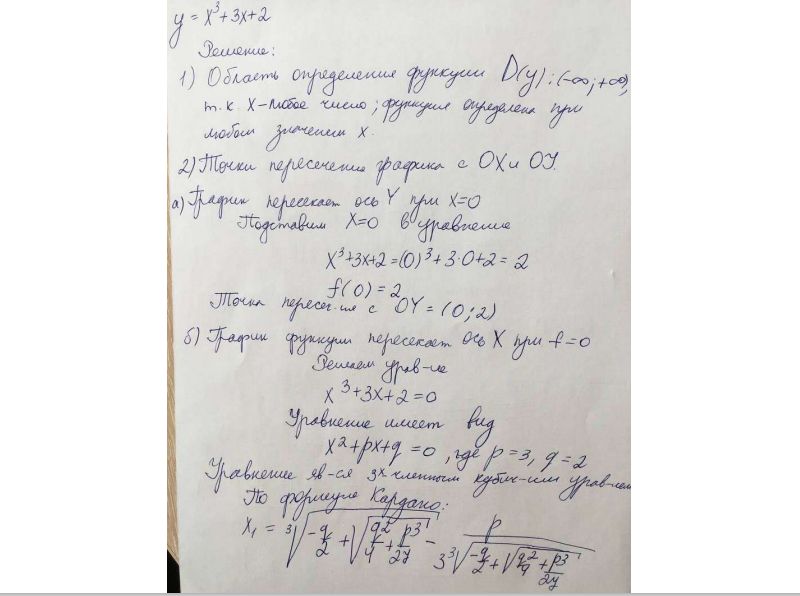 y = x³+3x+2
Решение:
1) Область определения функции D(y): (-∞; +∞),
т.к. X – любое число; функция определена при
любом значении X.
2) Точки пересечения графика с OX и OY.
а) График пересекает ось Y при X=0
Подставим X=0 в уравнение
X³+3X+2=(0)³+3·0+2=2
f(0)=2
Точка пересеч-ия с OY=(0;2)
б) График функции пересекает ось X при f=0
Решаем урав-ие
X³+3X+2=0
Уравнение имеет вид
X²+pX+q=0, где p=3, q=2
Уравнение яв-ся 3х-членным кубич-ким урав-ием
По формуле Кардано:
X₁ = ³√(-q/2 + √(q²/4 + p³/2y)) - p/(3 ³√(-q/2 + √(q²/4 + p³/2y)))